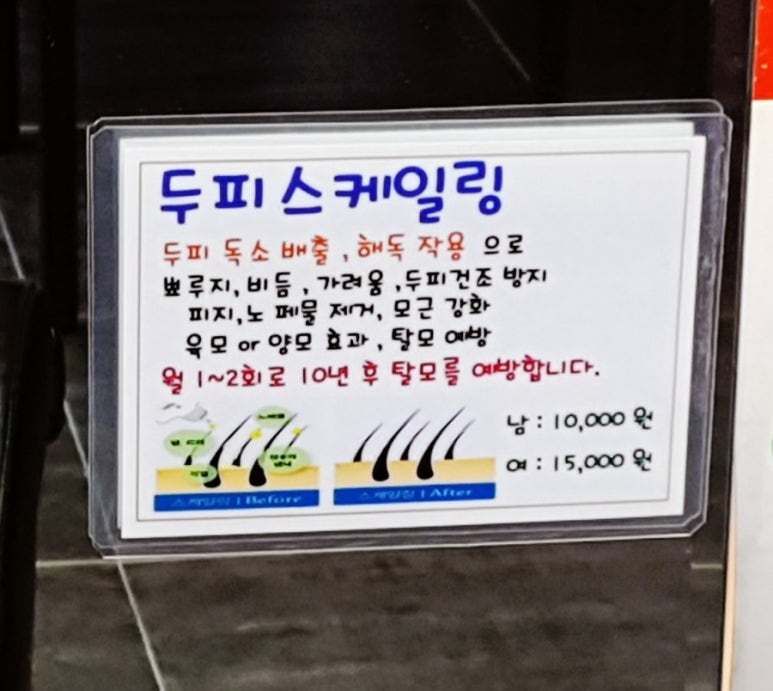 두피스케일링
두피 독소 배출 , 해독 작용 으로
뾰루지, 비듬 , 가려움 , 두피건조 방지
피지, 노 페물 제거, 모근 강화
육모 or 양모 효과 , 탈모 예방
월 1~2회로 10년 후 탈모를 예방합니다.
남 : 10,000 원
여 : 15,000 원
노폐물
비듬
스케일링 | Before
스케일링 | After